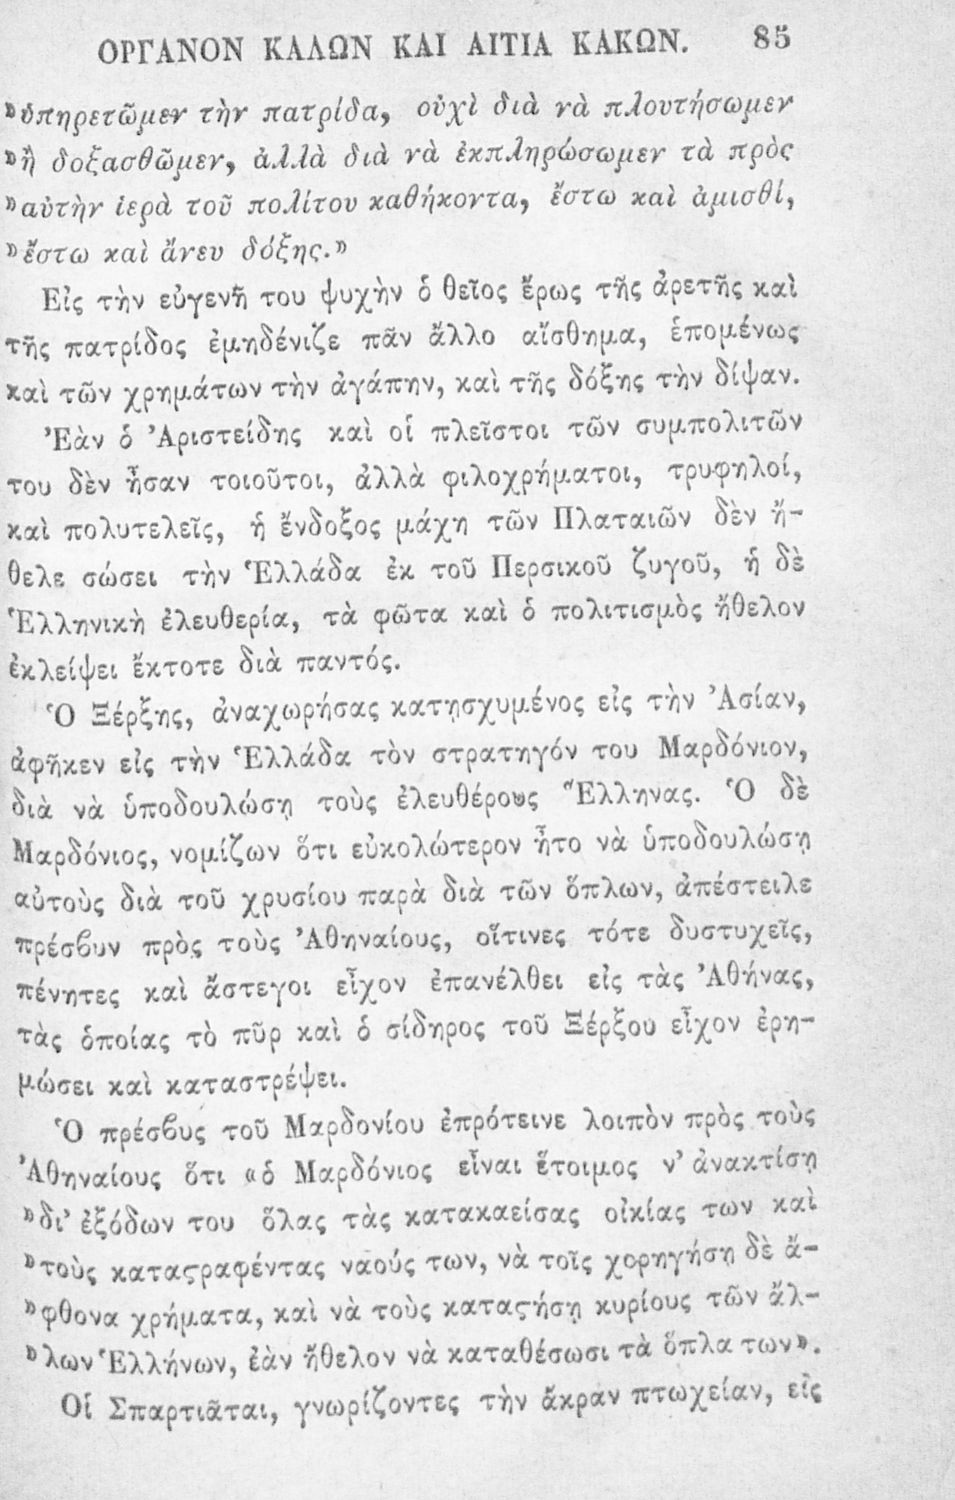 ΟΡΓΑΝΟΝ ΚΑΛΩΝ ΚΑΙ ΑΙΤΙΑ ΚΑΚΩΝ. 85
»ὑπηρετῶμεν τὴν πατρίδα, οὐχὶ διὰ νὰ πλουτήσωμεν
»ἢ δοξασθῶμεν, ἀλλὰ διὰ νὰ ἐκπληρώσωμεν τὰ πρὸς
»αὐτὴν ἱερὰ τοῦ πολίτου καθήκοντα, ἔστω καὶ ἀμισθί,
»ἔστω καὶ ἄνευ δόξης.»
Εἰς τὴν εὐγενῆ του ψυχὴν ὁ θεῖος ἔρως τῆς ἀρετῆς καὶ
τῆς πατρίδος ἐμηδένιζε πᾶν ἄλλο αἴσθημα, ἑπομένως
καὶ τῶν χρημάτων τὴν ἀγάπην, καὶ τῆς δόξης τὴν δίψαν.
Ἐὰν ὁ Ἀριστείδης καὶ οἱ πλεῖστοι τῶν συμπολιτῶν
του δὲν ἦσαν τοιοῦτοι, ἀλλὰ φιλοχρήματοι, τρυφηλοί,
καὶ πολυτελεῖς, ἡ ἔνδοξος μάχη τῶν Πλαταιῶν δὲν ἤ-
θελε σώσει τὴν Ἑλλάδα ἐκ τοῦ Περσικοῦ ζυγοῦ, ἡ δὲ
Ἑλληνικὴ ἐλευθερία, τὰ φῶτα καὶ ὁ πολιτισμὸς ἤθελον
ἐκλείψει ἔκτοτε διὰ παντός.
Ὁ Ξέρξης, ἀναχωρήσας κατησχυμένος εἰς τὴν Ἀσίαν,
ἀφῆκεν εἰς τὴν Ἑλλάδα τὸν στρατηγόν του Μαρδόνιον,
διὰ νὰ ὑποδουλώσῃ τοὺς ἐλευθέρους Ἕλληνας. Ὁ δὲ
Μαρδόνιος, νομίζων ὅτι εὐκολώτερον ἦτο νὰ ὑποδουλώσῃ
αὐτοὺς διὰ τοῦ χρυσίου παρὰ διὰ τῶν ὅπλων, ἀπέστειλε
πρέσϐυν πρὸς τοὺς Ἀθηναίους, οἵτινες τότε δυστυχεῖς,
πένητες καὶ ἄστεγοι εἶχον ἐπανέλθει εἰς τὰς Ἀθήνας,
τὰς ὁποίας τὸ πῦρ καὶ ὁ σίδηρος τοῦ Ξέρξου εἶχον ἐρη-
μώσει καὶ καταστρέψει.
Ὁ πρέσϐυς τοῦ Μαρδονίου ἐπρότεινε λοιπὸν πρὸς τοὺς
Ἀθηναίους ὅτι «ὁ Μαρδόνιος εἶναι ἕτοιμος ν’ ἀνακτίσῃ
»δι’ ἐξόδων του ὅλας τὰς κατακαείσας οἰκίας των καὶ
»τοὺς καταϛραφέντας ναούς των, νὰ τοῖς χορηγήσῃ δὲ ἄ-
»φθονα χρήματα, καὶ νὰ τοὺς καταϛήσῃ κυρίους τῶν ἄλ-
»λων Ἑλλήνων, ἐὰν ἤθελον νὰ καταθέσωσι τὰ ὅπλα των».
Οἱ Σπαρτιᾶται, γνωρίζοντες τὴν ἄκραν πτωχείαν, εἰς